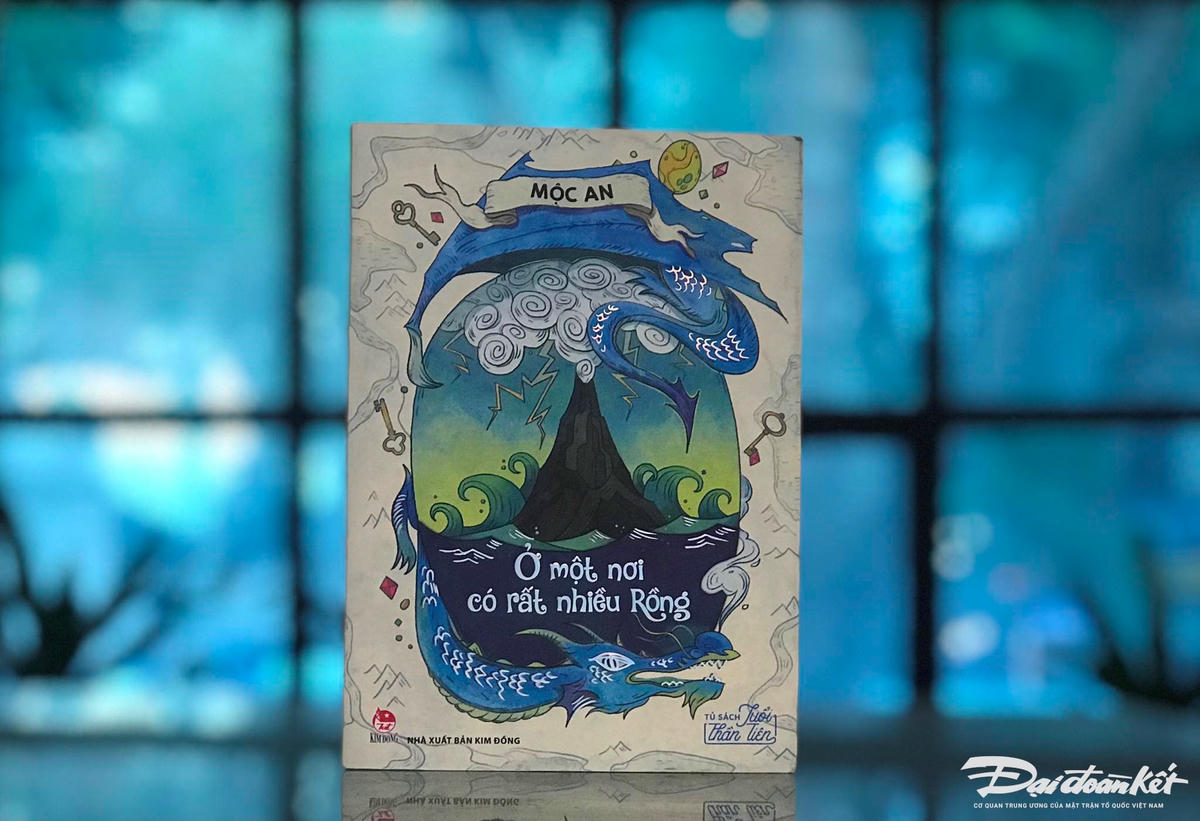 MỘC AN
Ở một nơi
có rất nhiều Rồng
KIM ĐỒNG
NHÀ XUẤT BẢN KIM ĐỒNG
TỦ SÁCH Tuổi
thần tiên
Đại đoàn kết
CƠ QUAN TRUNG ƯƠNG CỦA MẶT TRẬN TỔ QUỐC VIỆT NAM